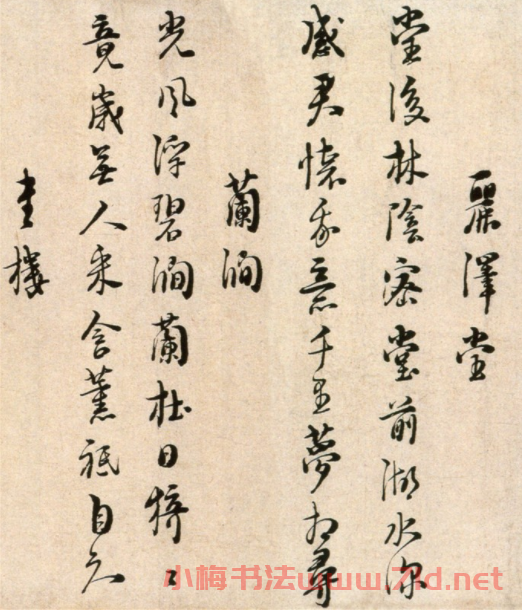 麗澤堂
堂後林陰密堂前湖水深
感君懷我意千里夢相尋
蘭澗
光風浮碧澗蘭杜日猗〻
竟歲無人采含薰祇自知
書樓
小梅书法www.7td.net